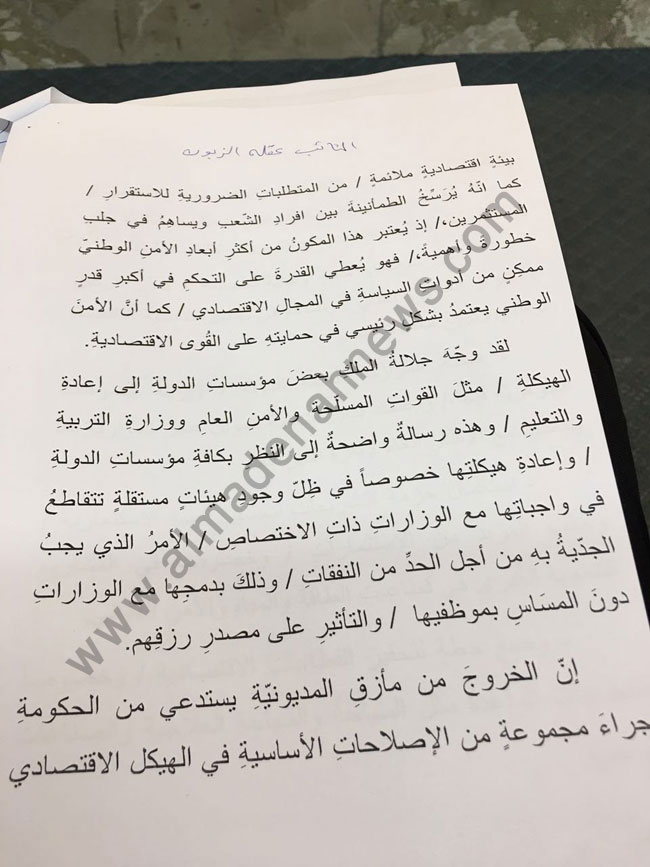 النائب عقله الزبون
بيئةٍ اقتصاديةٍ ملائمةٍ / من المتطلباتِ الضروريةِ للاستقرارِ /
كما انّهُ يُرَسِّخُ الطمأنينةَ بين افرادِ الشّعبِ ويساهمُ في جلبِ
المستثمرين،/ إذ يُعتبر هذا المكونُ من أكثرِ أبعادِ الأمنِ الوطنيّ
خطورةً وأهميةً،/ فهو يُعطي القدرةَ على التحكمِ في أكبرِ قدرٍ
ممكِنٍ من أدواتِ السياسةِ في المجالِ الاقتصادي / كما أنَّ الأمنَ
الوطني يعتمدُ بشكلٍ رئيسي في حمايتهِ على القُوى الاقتصاديةِ.
لقد وجّهَ جلالةُ الملكِ بعضَ مؤسساتِ الدولةِ إلى إعادةِ
الهيكلةِ / مثلَ القواتِ المسلحةِ والأمنِ العامِ ووزارةِ التربيةِ
والتعليمِ / وهذه رسالةٌ واضحةٌ إلى النظرِ بكافةِ مؤسساتِ الدولةِ
/ وإعادةِ هيكلتِها خصوصاً في ظِلّ وجودِ هيئاتٍ مستقلةٍ تتقاطعُ
في واجباتِها مع الوزاراتِ ذاتِ الاختصاصِ / الأمرُ الذي يجبُ
الجدّيةُ بهِ من أجل الحدِّ من النفقاتِ / وذلكَ بدمجِها مع الوزاراتِ
دونَ المسَاسِ بموظفيها / والتأثيرِ على مصدرِ رزقِهم.
إنّ الخروجَ من مأزقِ المديونيّةِ يستدعي من الحكومةِ
جراءَ مجموعةٍ من الإصلاحاتِ الأساسيةِ في الهيكل الاقتصادي
www.almadenahnews.com